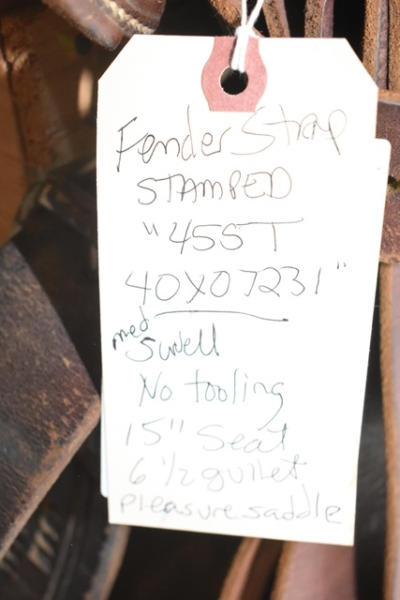 Fender Strap
STAMPED
"45ST
40X07231"
med
Swell
No tooling
15" Seat
6 1/2 gullet
pleasure saddle